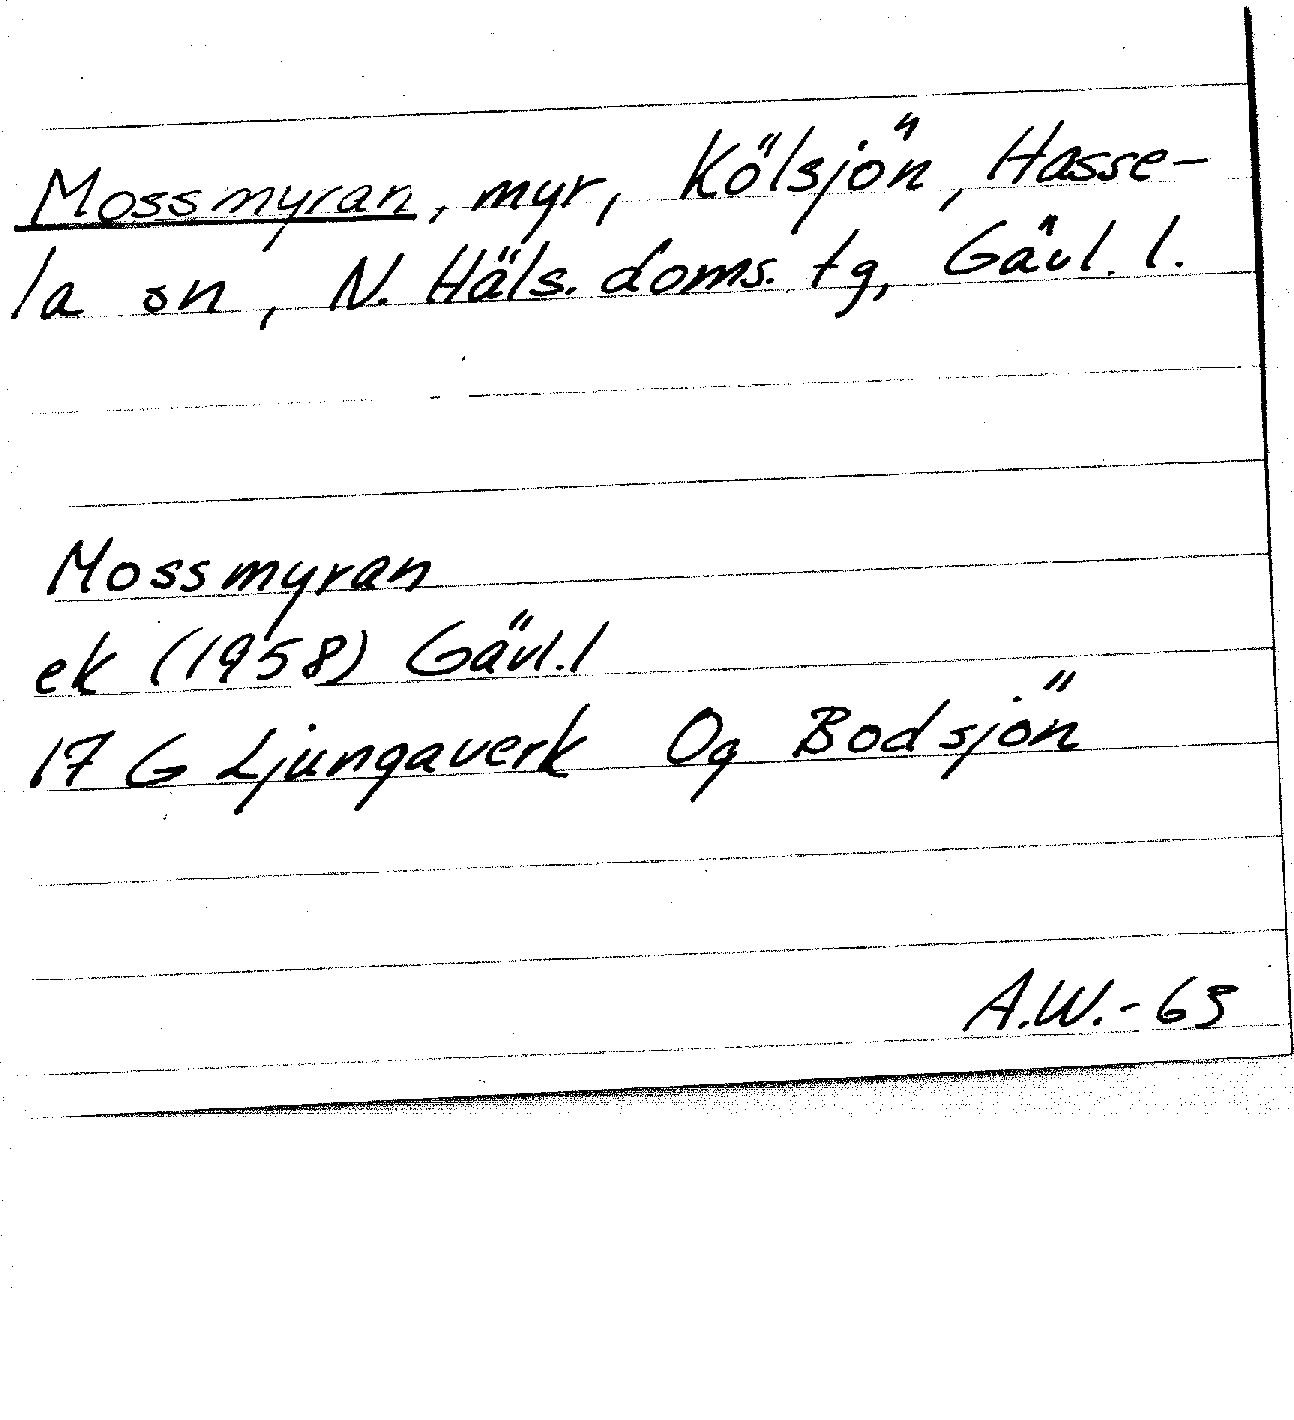 Mossmyran, myr, Kölsjön, Hasse-
la sn, N. Häls. doms. tg, Gävl. l.
Mossmyran
ek (1958) Gävl. l
17 G Ljungaverk 0g Bodsjön
A.W.-63